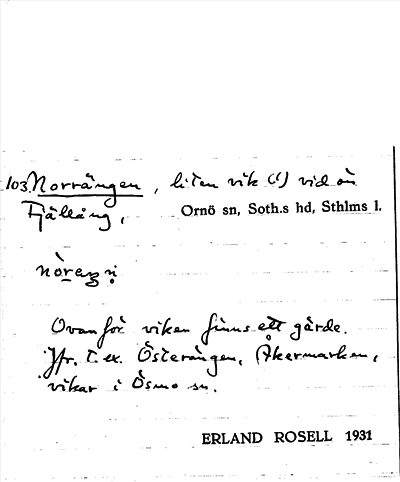 103. Norrängen, liten vik (1) vid ön
Fjällång, Ornö sn, Soth.s hd, Sthlms l.
Ovanför viken finns ett gärde.
Jfr. t.ex. Österängen, Åkermarken,
vikar i Ösmo sn.
ERLAND ROSELL 1931